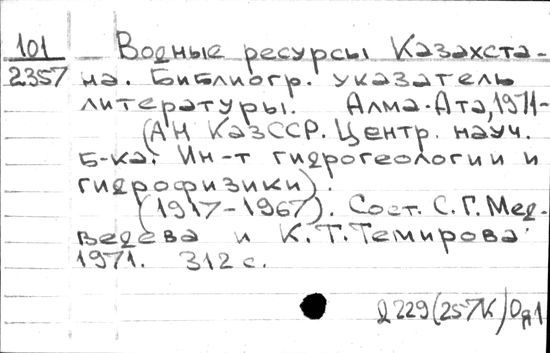 101 Водные ресурсы Казахста-
2357 на. Библиогр. указатель
литературы. Алма-Ата, 1971-
(АН КазССР. Центр. науч.
б-ка. Ин-т гидрогеологии и
гидрофизики).
(1917-1967). Сост. С.Г. Мед-
ведева и К.Т. Темирова.
1971. 312 с.
2229(257К)Оя1